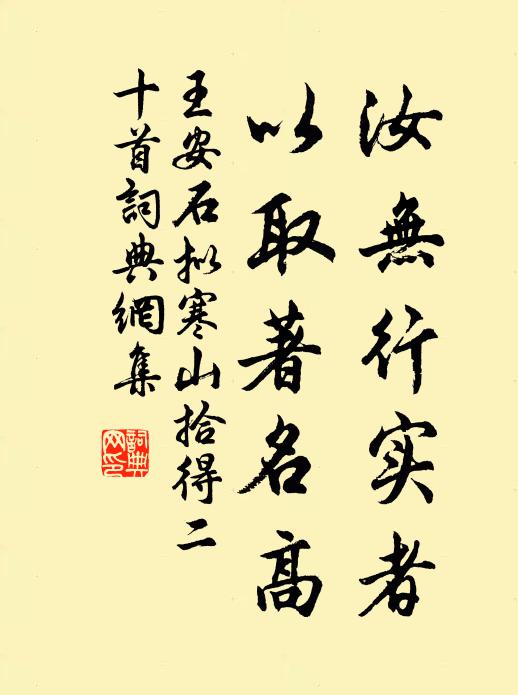 汝無行实者
以取著名高
王安石拟寒山拾得二
十首詞典網集
詞典
网印